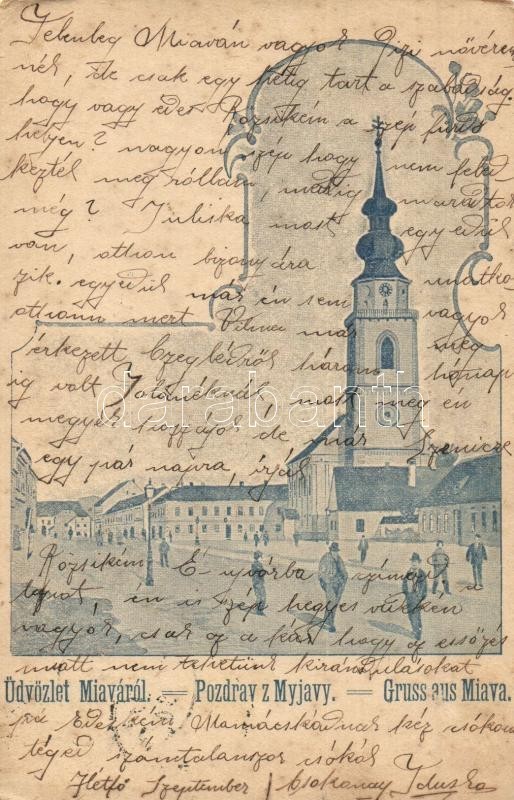 Jelenleg Miaván vagyok Gizi nővérem
nél, de csak egy hétig tart a szabadság.
hogy vagy édes Rózsikém a szép fürdő
helyen? nagyon szép hogy nem feled
keztél meg rólam, meddig
még? Juliska most egyedül
van, otthon bizonyára
zik. egyedül már én sem
otthon mert Vilma már vagyok
érkezett Czeglédről három meg
ig volt Jolánéknál, most meg én hónap
megyek hozzájok de már Szenicze
egy pár napra, írjál
Rózsikém É-ujvárba
lapot, én is szép hegyes vidéken
vagyok, csak az a kár hogy az essőzés
miatt nem tehetünk kirándulásokat
Üdvözlet Miaváról. = Pozdrav z Myjavy. = Gruss aus Miava.
Mamácskádnak kéz csókom
téged számtalanszor csókol
Hetfő Szeptember
darabanth